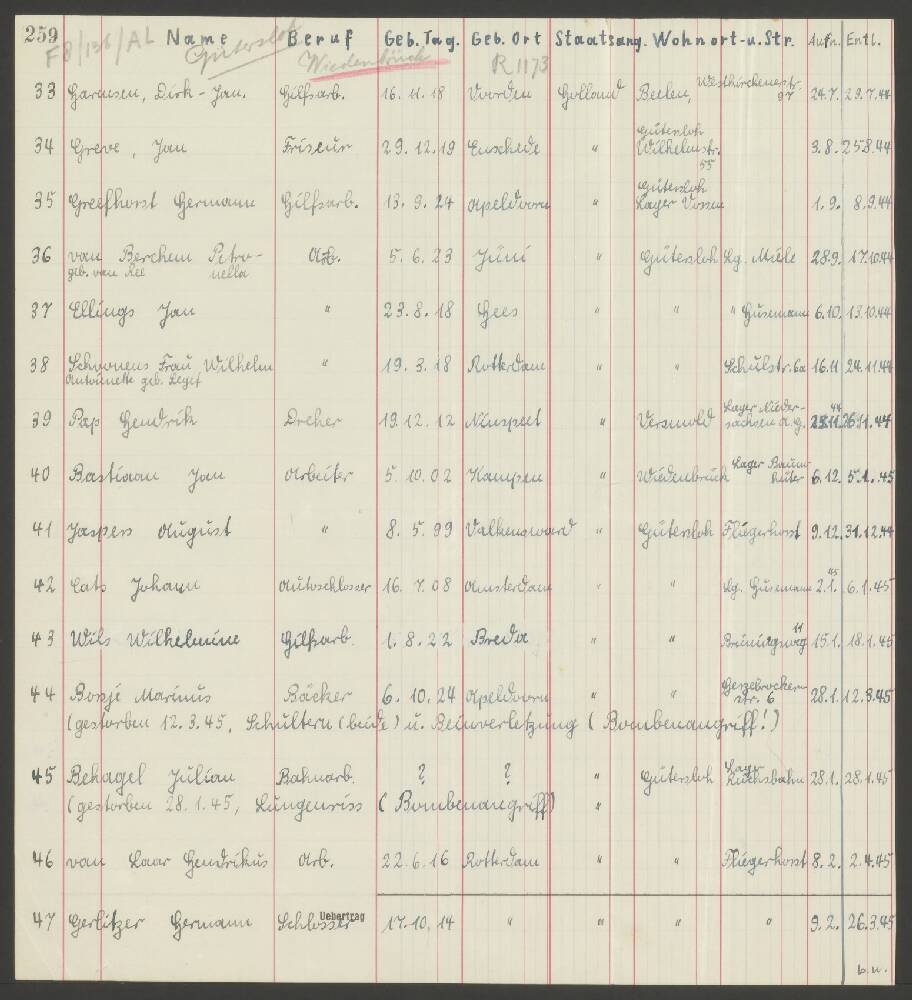 259 F8/136/AL Gütersloh Wiedenbrück R 1173
Name Beruf Geb. Tag. Geb. Ort Staatsang. Wohnort-u. Str. Aufn. Entl.
33 Harmsen, Dirk-Jan. Hilfsarb. 16.11.18 Voorden Holland Beelen, Westkirchenerstr. 97 24.7. 29.7.44
34 Greve, Jan Friseur 29.12.19 Enschede " Gütersloh Wilhelmstr. 55 3.8. 25.8.44
35 Greefhorst Hermann Hilfsarb. 13.9.24 Apeldoorn " Gütersloh Lager Vossen 1.9. 8.9.44
36 van Berchem Petro- Arb. 5.6.23 " Gütersloh Lg. Miele 28.9. 17.10.44
geb. van nella
37 Ellings Jan " 23.8.18 Hees " " " Husemann 6.10. 13.10.44
38 Schoonens Frau Wilhelm " 19.3.18 Rotterdam " " Schulstr. 6a 16.11 24.11.44
Antoinette geb.
39 Pap Hendrik Dreher 19.12.12 Nunspeet " Versmold Lager Nieder-
sachsen A.G. 44 26.11.44
40 Bastiaan Jan Arbeiter 5.10.02 Kampen " Wiedenbrück Lager 6.12. 5.1.45
41 Jaspers August " 8.5.99 Valkensward " Gütersloh Fliegerhorst 9.12. 31.12.44
42 Cats Johann Autoschlosser 16.7.08 Amsterdam " " Lg. Husemann 2.1.45 6.1.45
43 Wils Wilhelmine Hilfsarb. 1.8.22 Breda " " Brüningsweg 11 15.1. 18.1.45
44 Bosje Marinus Bäcker 6.10.24 Apeldoorn " " str. 6 28.1. 12.3.45
(gestorben 12.3.45, Schultern (beide) u. Beinverletzung (Bombenangriff!)
45 Behagel Julian Bahnarb. ? ? " Gütersloh Lager Reichsbahn 28.1. 28.1.45
(gestorben 28.1.45, Lungenriss (Bombenangriff) "
46 van Laar Hendrikus Arb. 22.6.16 Rotterdam " " Fliegerhorst 8.2. 2.4.45
Uebertrag
47 Gerlitzer Hermann Schlosser 17.10.14 " " " " 9.2. 26.3.45
b.w.